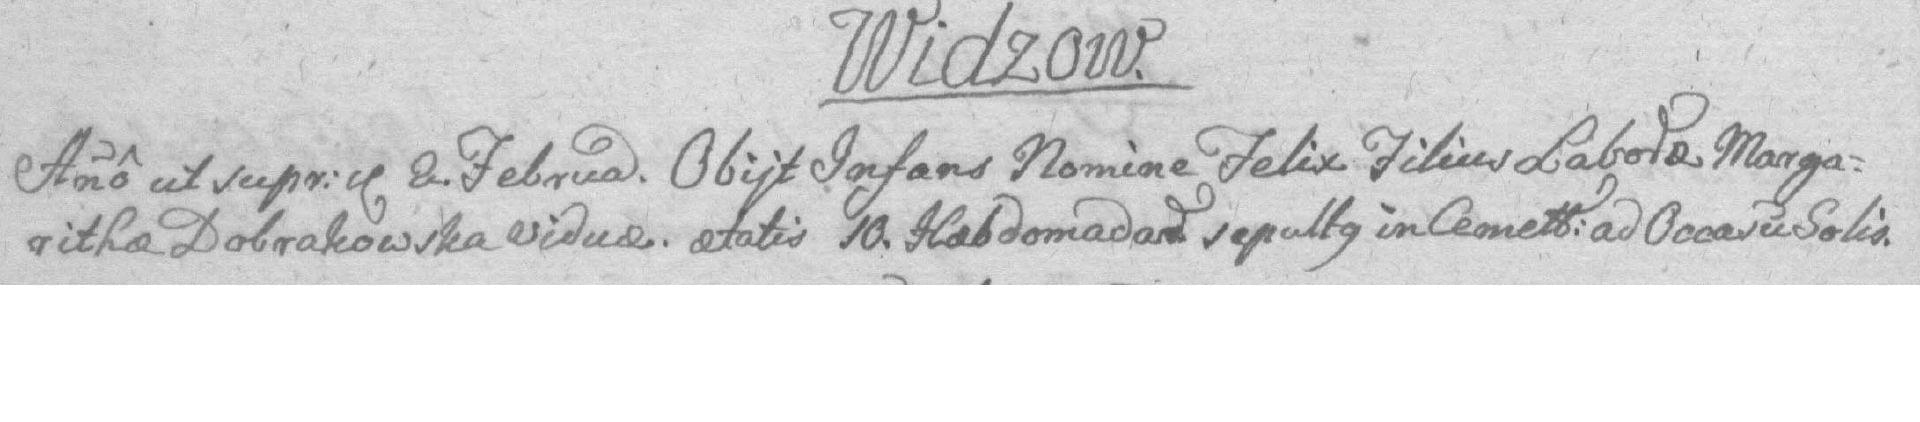 Widzow.
Añô ut supr: 2. Februa. Obijt Infans Nomine Felix Filius Laboræ Marga=
rithæ Dobrakowska viduæ. ætatis 10. Hæbdomadar sepultg in Cemett: ad Occasũ Solis.